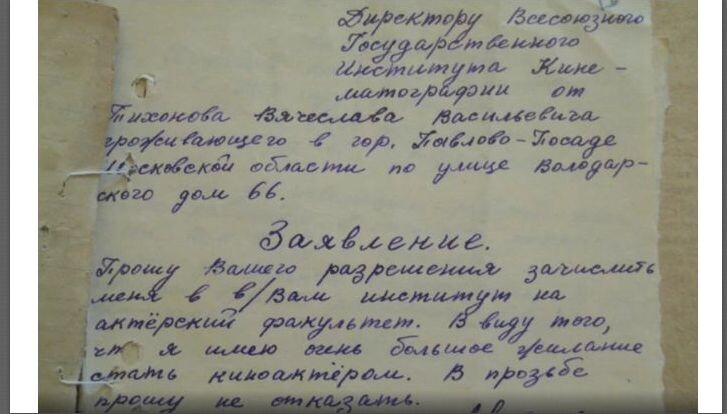 Директору Всесоюзного
Государственного
Института Кине-
матографии от
Тихонова Вячеслава Васильевича
проживающего в гор. Павлово-Посаде
Московской области по улице Володар-
ского дом 66.
Заявление.
Прошу Вашего разрешения зачислить
меня в в/Вам институт на
актёрский факультет. В виду того,
чт я имею очень большое желание
стать киноактёром. В прозьбе
прошу не отказать.